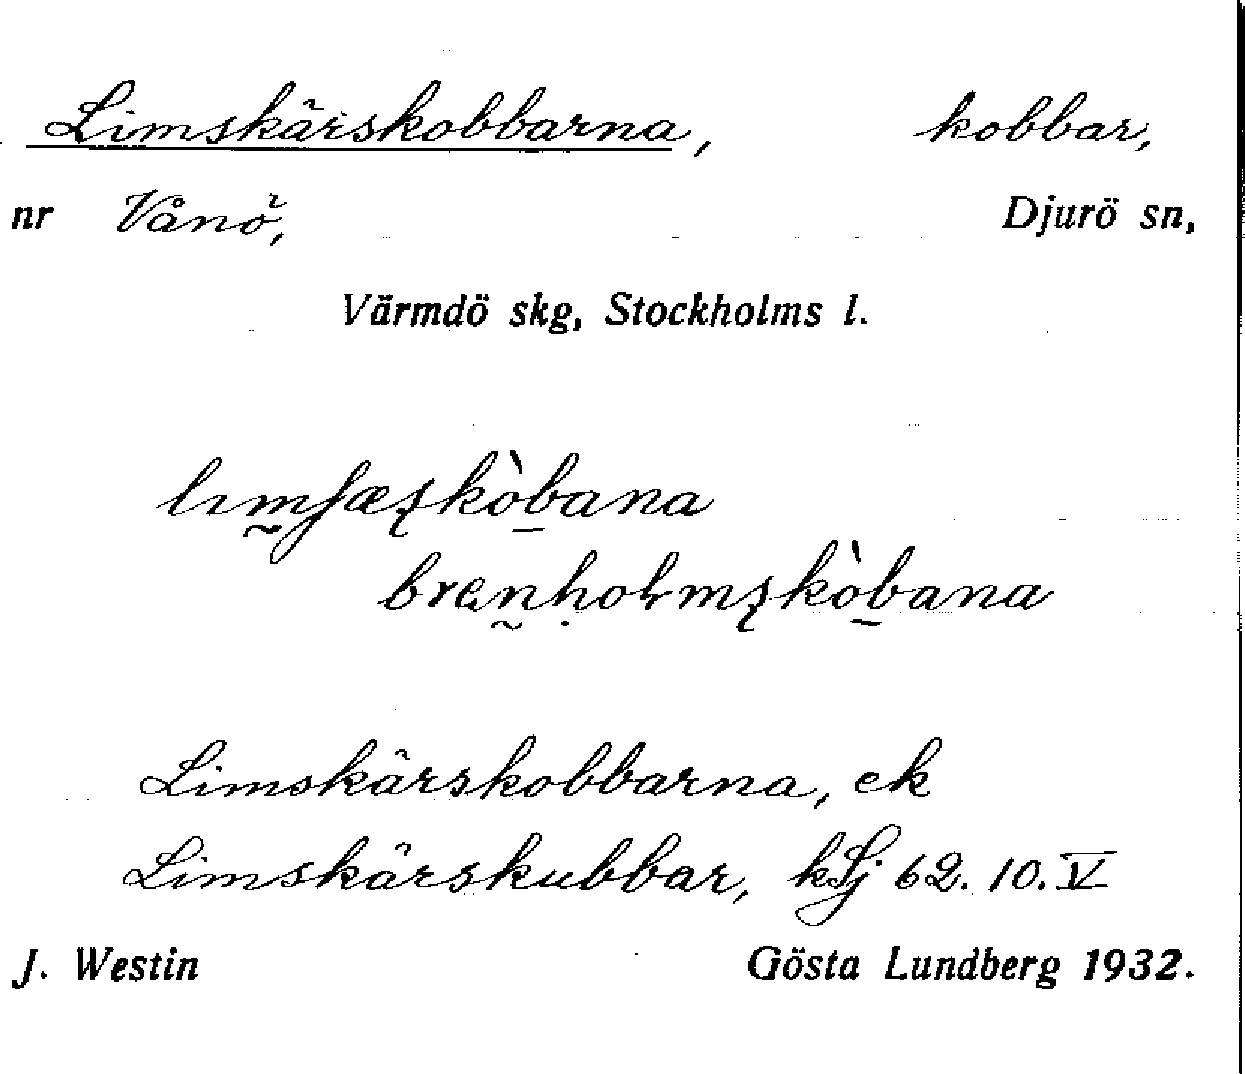 Limskärskobbarna, kobbar,
nr Vånö, Djurö sn,
Värmdö skg, Stockholms l.
lımʃæʂkòbana
brenholmʂkòbana
Limskärskobbarna, ek
Limskärskubbar, kSj 62. 10. V
J. Westin Gösta Lundberg 1932.